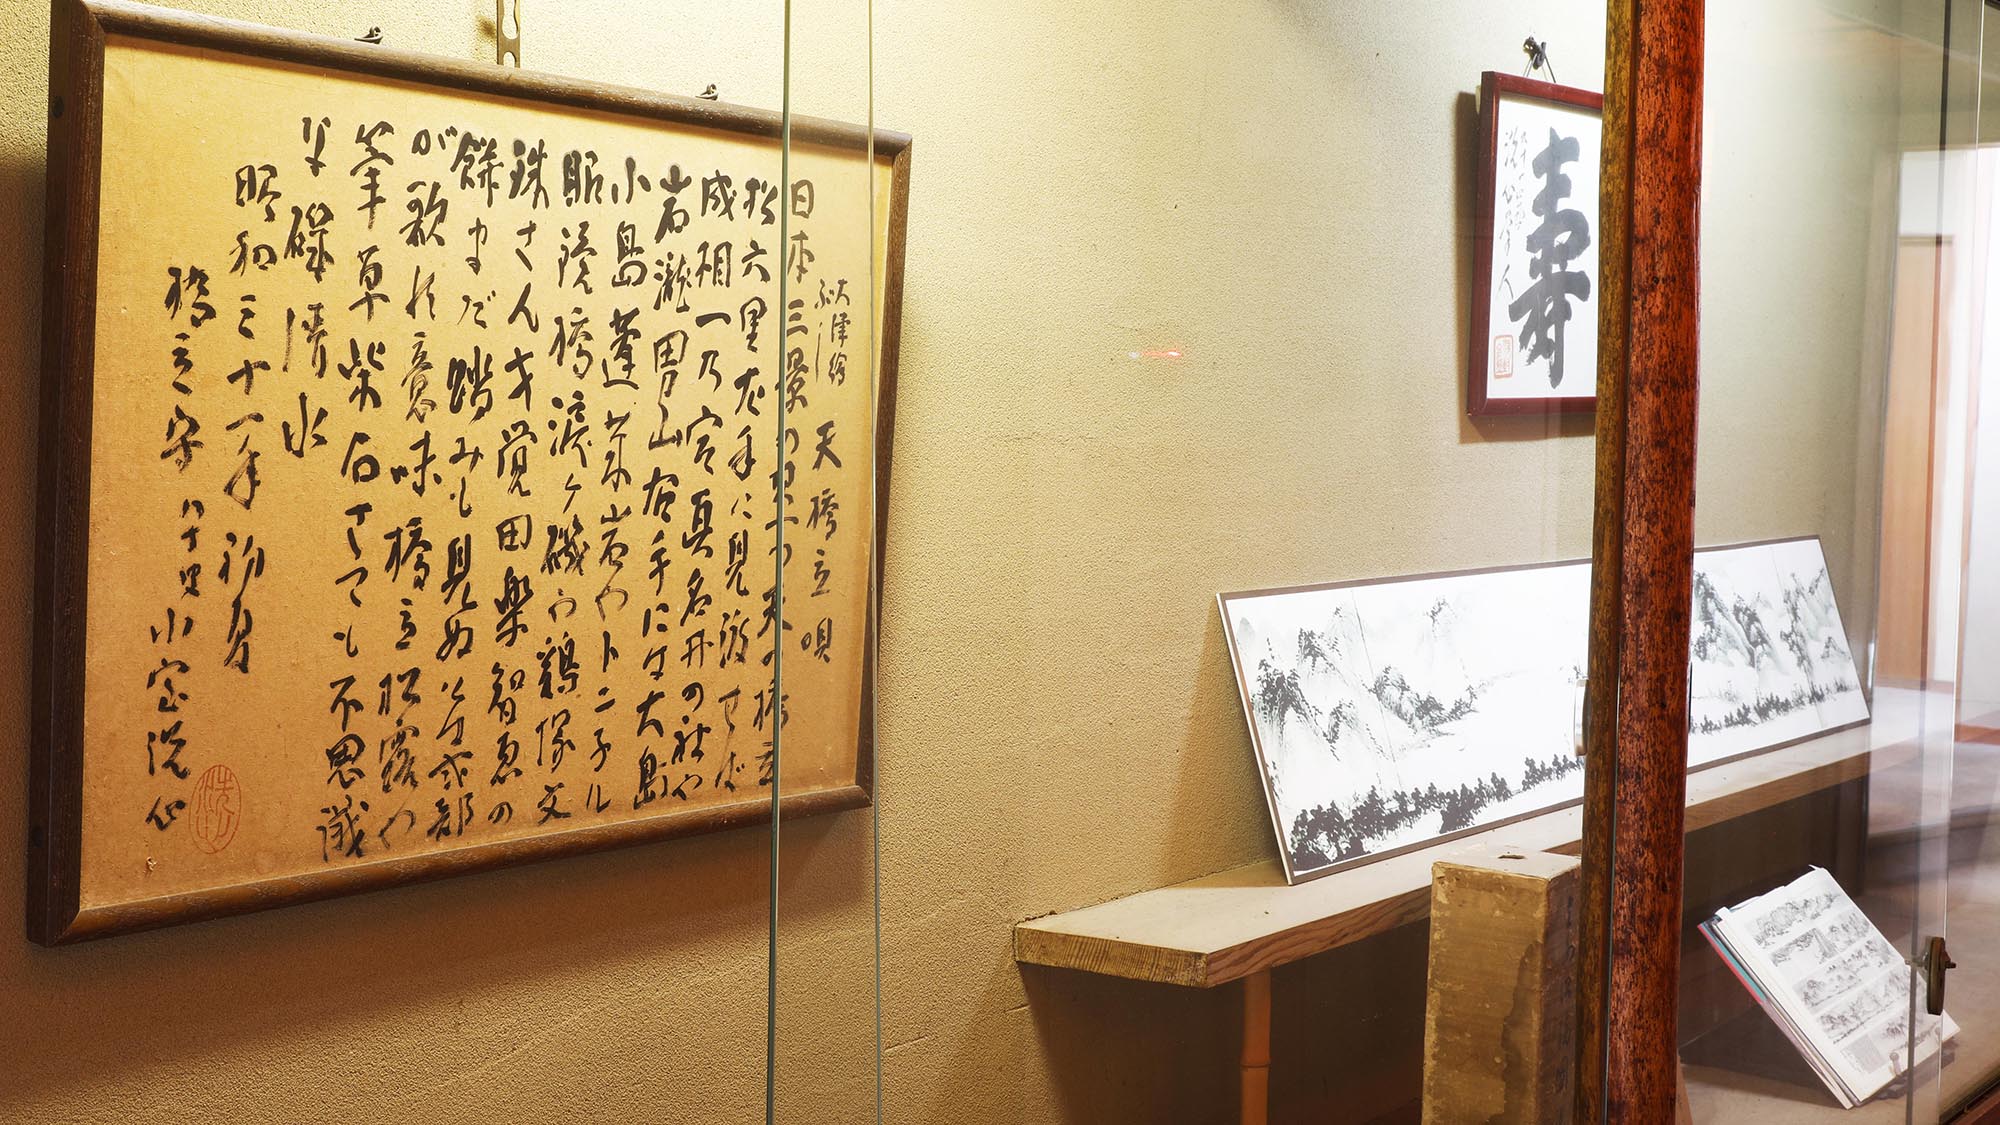 大津絵
ぶし
天橋立唄
日本三景の其一つ天の橋立
松六里左手に見渡せば
成相一の宮真名井の社や
岩滝男山右手には大島
小島蓬莱岩や卜ニ子ル
眼鏡橋涙ケ磯や鶏塚文
珠さんオ覚田楽智恵の
餅まだ踏みも見ぬとは式部
が歌の意味橋立松露や
筆草柴石さても不思議
な磯清水
昭和三十一年初夏
橋立守八十叟小室洗心
寿